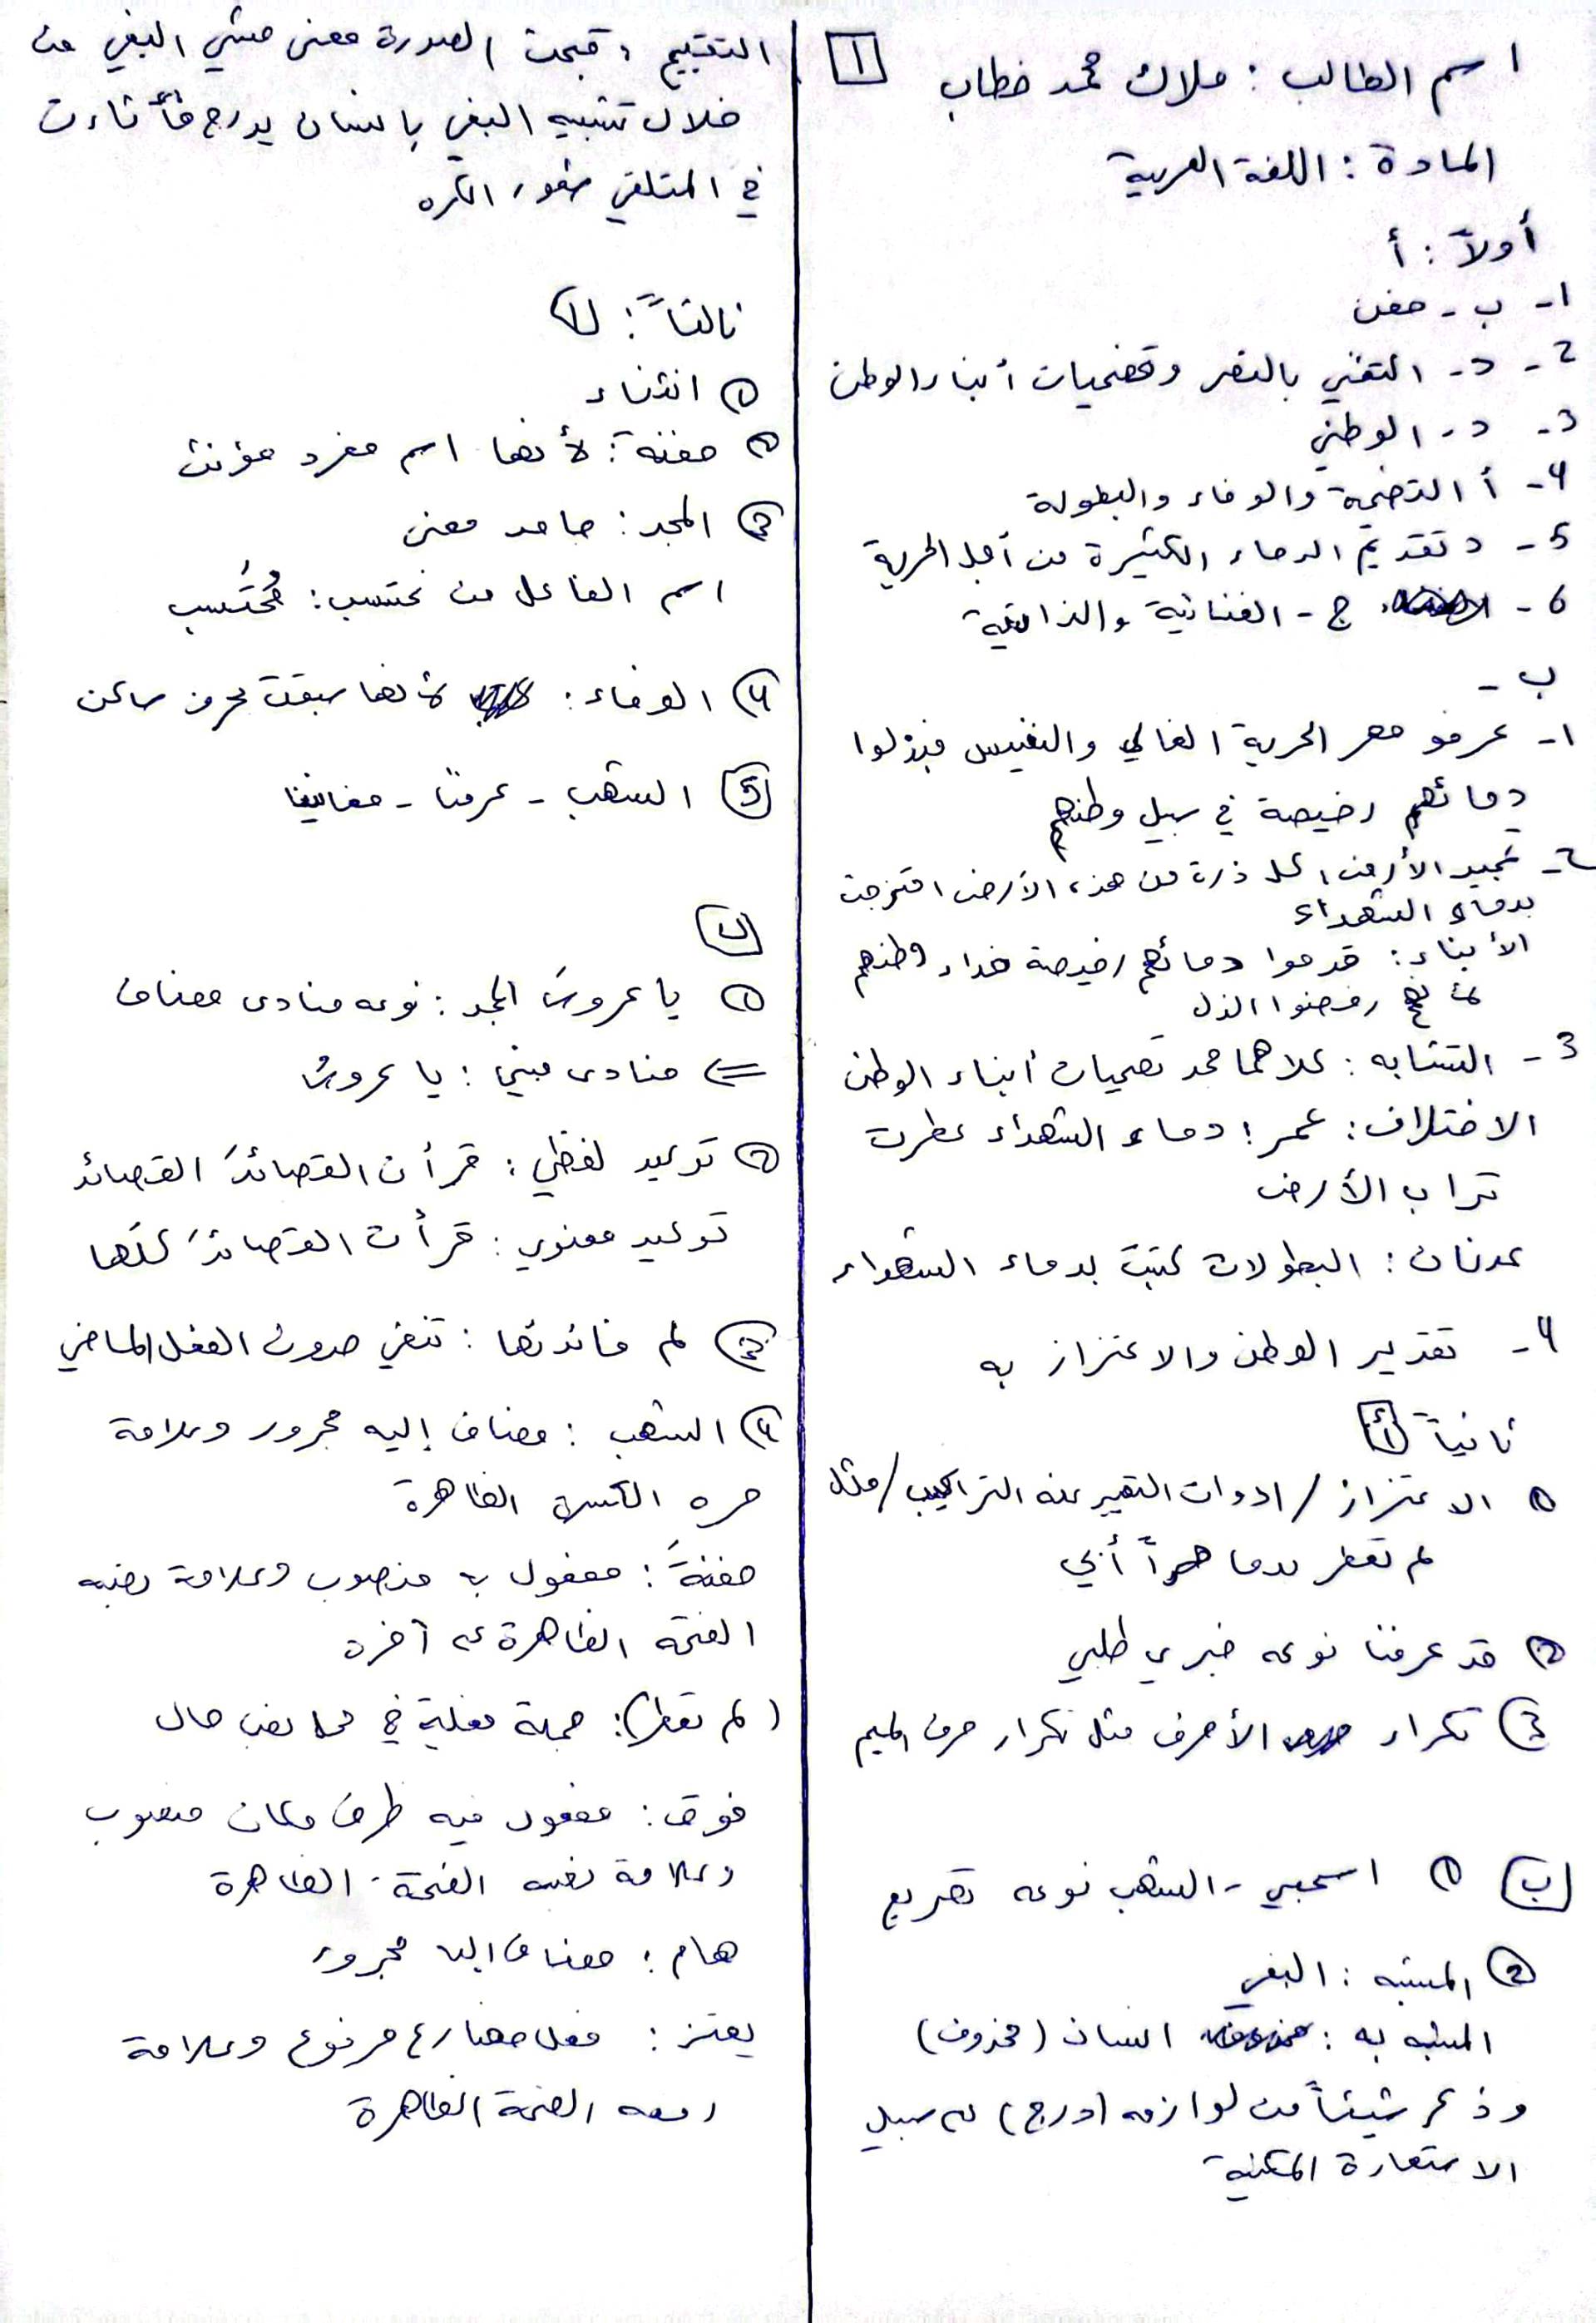 1
اسم الطالب : ملاك محمد خطاب
المادة : اللغة العربية
أولاً : أ
1- ب - مغن
2- د - التغني بالنصر وتضحيات أبناء الوطن
3- د - الوطني
4- أ التضحية والوفاء والبطولة
5- د تقديم الدماء الكثيرة من أجل الحرية
6- ج - الغنائية والذاتية
ب -
1- عرفو مهر الحرية الغالي والنفيس فبذلوا
دمائهم رخيصة في سبيل وطنهم
2- تمجيد الأرض، كل ذرة من هذه الأرض امتزجت
بدماء الشهداء
الأبناء : قدموا دمائهم رخيصة فداء وطنهم
لأنهم رفضوا الذل
3- التشابه : كلاهما مجد تضحيات أبناء الوطن
الاختلاف : عمر : دماء الشهداء عطرت
تراب الأرض
عدنان : البطولات كتبت بدماء الشهداء
4- تقدير الوطن والاعتزاز به
ثانياً أ
1 الاعتزاز / ادوات التعبير عنه التراكيب / مثل
لم تعطر بدما حراً أبي
2 قد عرفنا نوعه خبري طلبي
3 تكرار الأحرف مثل تكرار حرف الميم
ب 1 اسحبي - الشهب نوعه تصريع
2 المشبه : البغي
المشبه به : انسان (محذوف)
وذكر شيئاً من لوازمه (درج) على سبيل
الاستعارة المكنية
التقبيح : قبحت الصورة معنى مشي البغي من
خلال تشبيه البغي بإنسان يدرج فأثارت
في المتلقي شعور الكره
ثالثاً :
1 انثناء
2 مغنة : لأنها اسم مفرد مؤنث
3 المجد : جامد معنى
اسم الفاعل من نحتسب : مُحتَسِب
4 الوفاء : لأنها سبقت بحرف ساكن
5 الشهب - عرفنا - مغانينا
ب
1 يا عروسَ المجد : نوعه منادى مضاف
<= منادى مبني : يا عروسُ
2 توكيد لفظي : قرأت القصائدَ القصائد
توكيد معنوي : قرأت القصائدَ كلَها
3 لم فائدتها : تنفي حدوث الفعل الماضي
4 الشهب : مضاف إليه مجرور وعلامة
جره الكسرة الظاهرة
مغنةً : مفعول به منصوب وعلامة نصبه
الفتحة الظاهرة على آخره
(لم تعطر) : جملة فعلية في محل نصب حال
فوق : مفعول فيه ظرف مكان منصوب
وعلامة نصبه الفتحة الظاهرة
هام : مضاف إليه مجرور
يعتز : فعل مضارع مرفوع وعلامة
رفعه الضمة الظاهرة